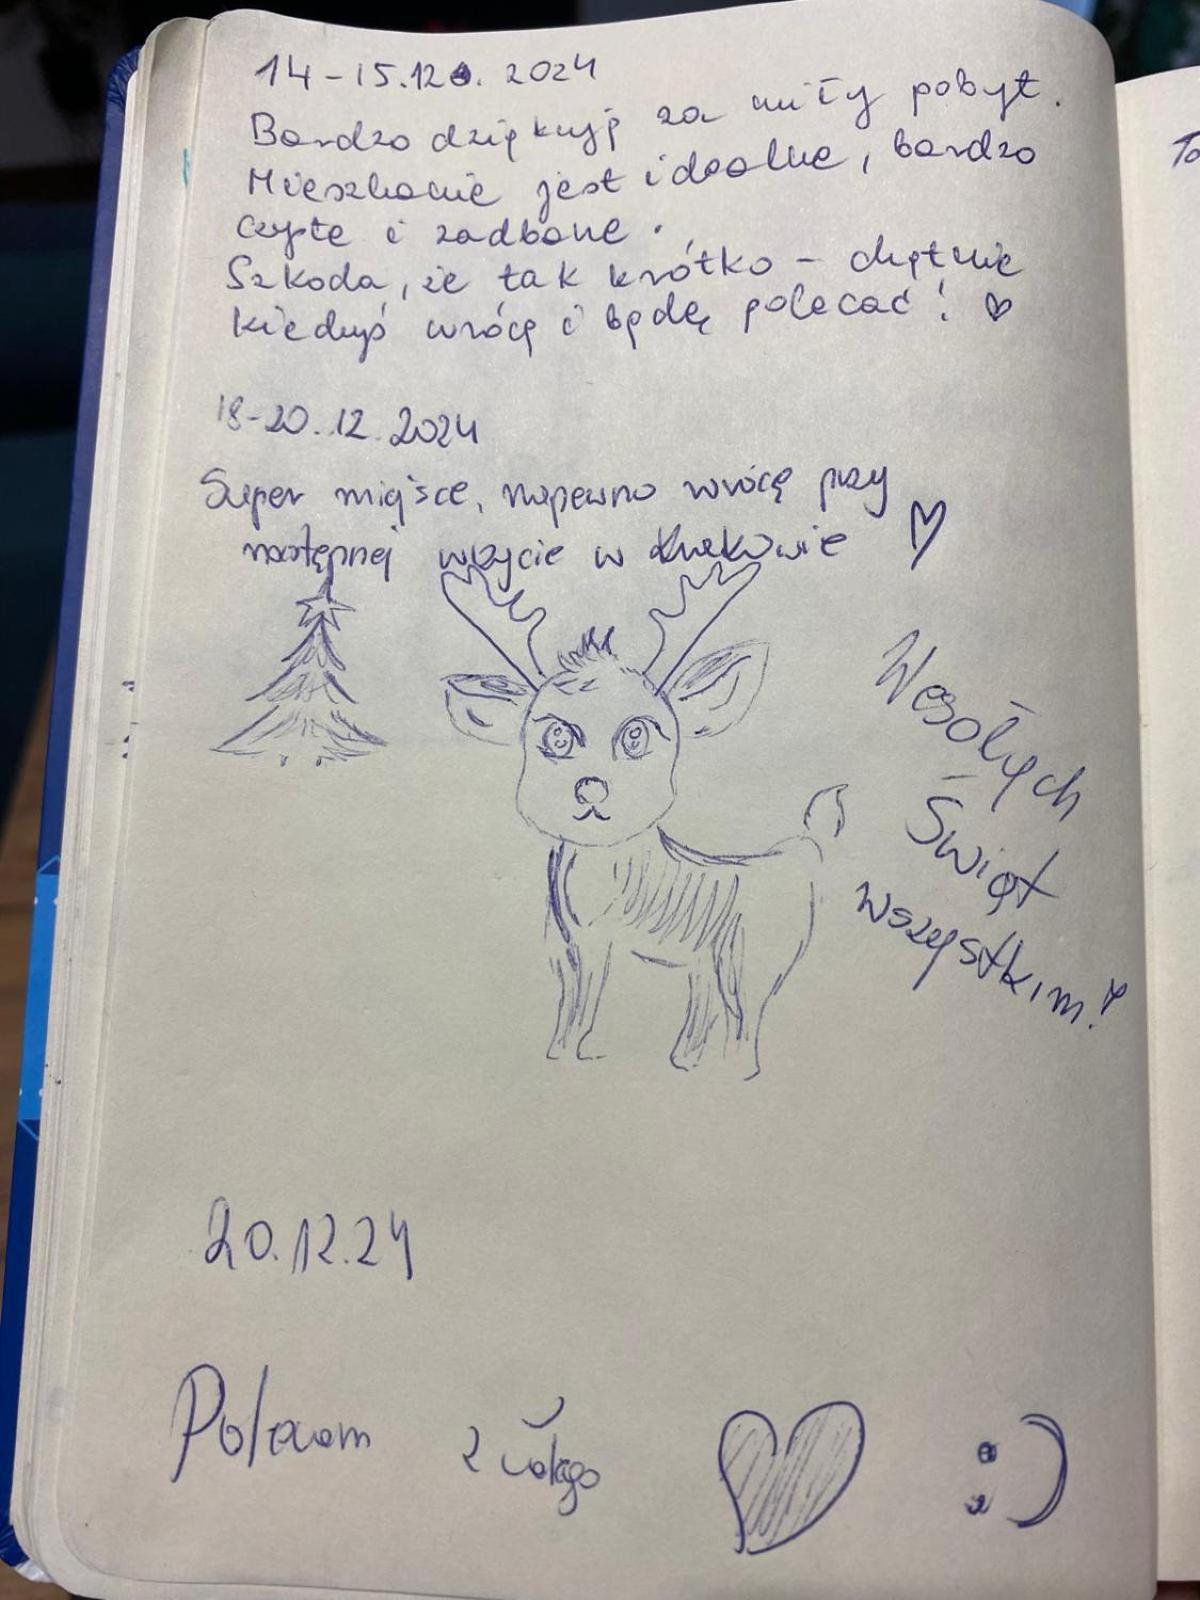 14-15.12. 2024
Bardzo dziękuję za miły pobyt.
Mieszkanie jest idealne, bardzo
czyste i zadbane.
Szkoda, że tak krótko - chętnie
kiedyś wrócę i będę polecać! ♡
18-20.12.2024
Super miejsce, napewno wrócę przy
następnej wizycie w Krakowie ♡
Wesołych
Świąt
wszystkim!
20.12.24
Polecam :)
To